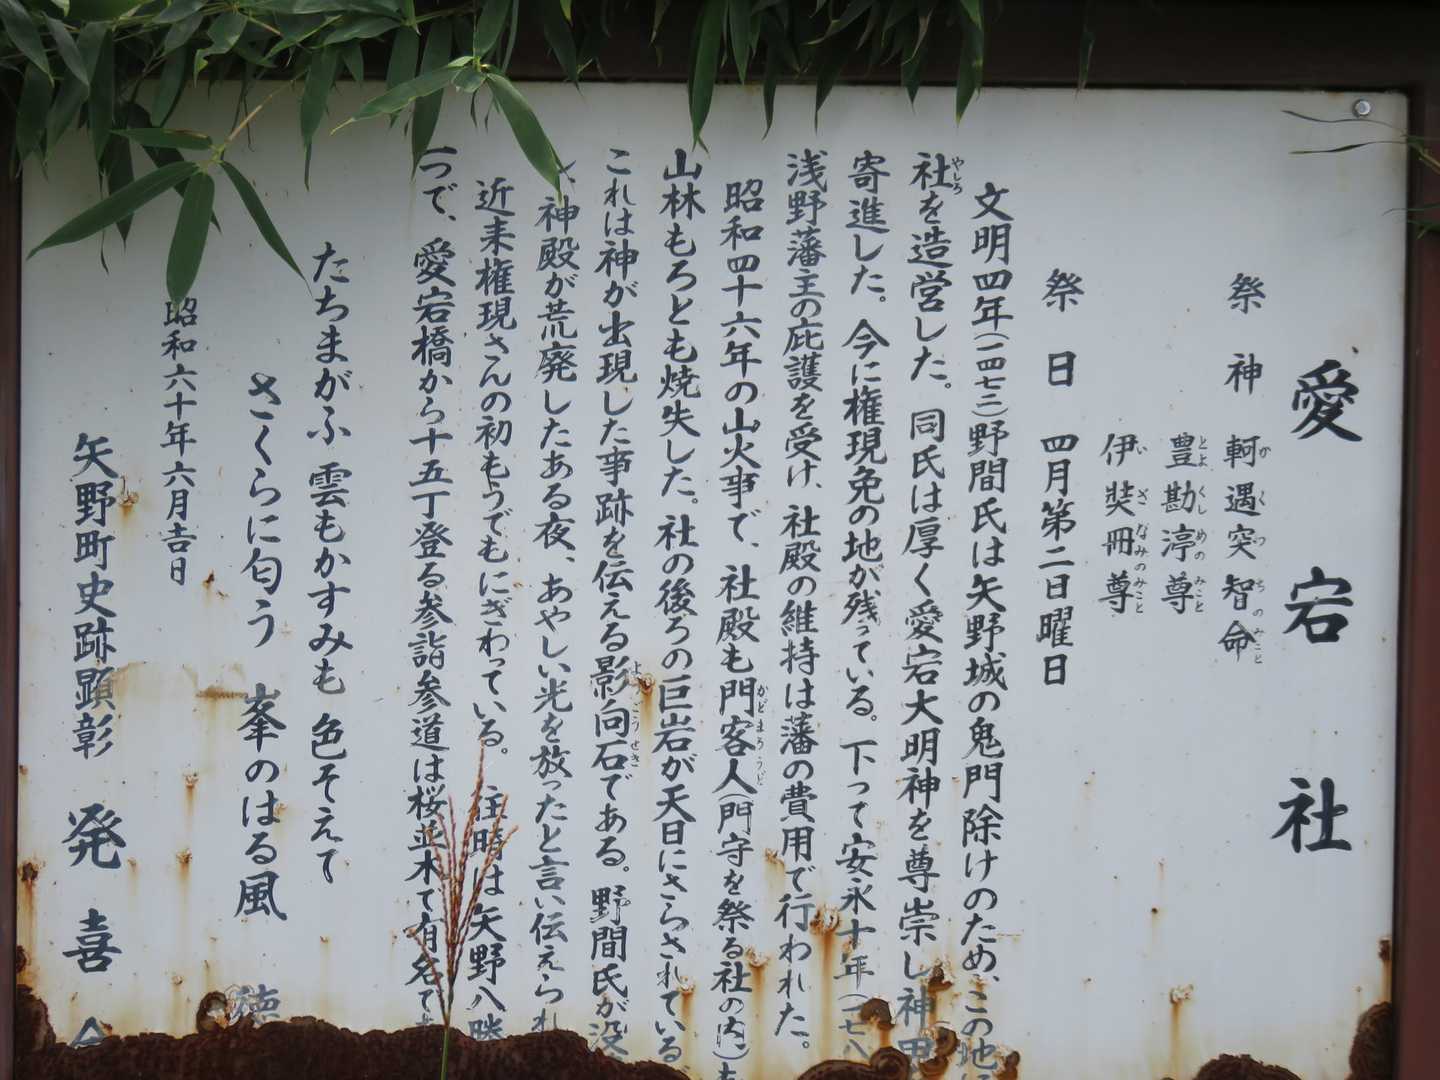 愛宕社
祭神 軻遇突智命
豊勘渟尊
伊奘冊尊
祭日 四月第二日曜日
文明四年(一四七二)野間氏は矢野城の鬼門除けのため、この地に
社を造営した。同氏は厚く愛宕大明神を尊崇し神田
寄進した。今に権現免の地が残っている。下って安永十年(一七八
浅野藩主の庇護を受け、社殿の維持は藩の費用で行われた。
昭和四十六年の山火事で、社殿も門客人(門守を祭る社の内)も
山林もろとも焼失した。社の後ろの巨岩が天日にさらされている
これは神が出現した事跡を伝える影向石である。野間氏が没
神殿が荒廃したある夜、あやしい光を放ったと言い伝えられ
近来権現さんの初もうでもにぎわっている。往時は矢野八勝
一つで、愛宕橋から十五丁登る参詣参道は桜並木で有名で
たちまがふ 雲もかすみも 色そえて
さくらに匂う 峯のはる風
徳
昭和六十年六月吉日
矢野町史跡顕彰 発喜会